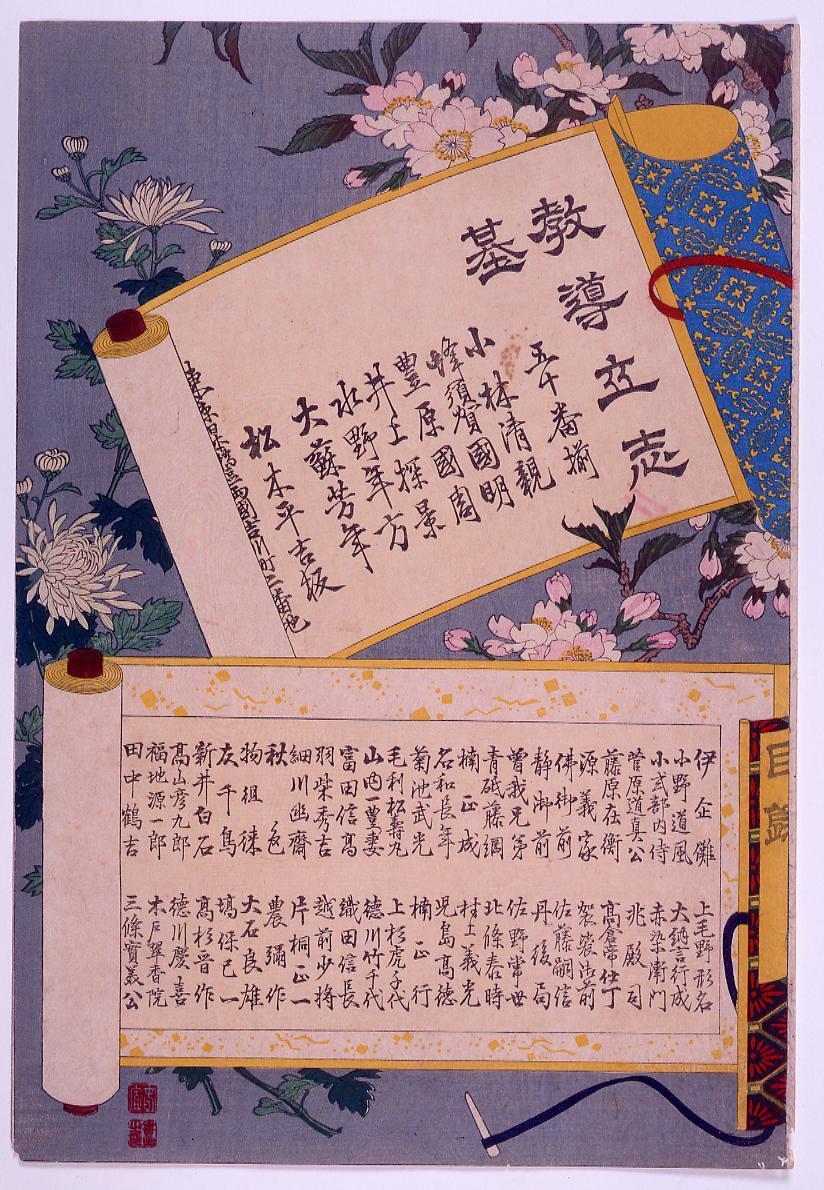 教導立志
基
五十番揃
小林清親
蜂須賀國明
豊原國周
井上探景
水野年方
大蘇芳年
松木平吉板
東京日本橋區両國吉川町二番地
目錄
伊企儺
上毛野形名
小野道風
大納言行成
小式部内侍
赤染衛門
菅原道真公
兆殿司
藤原在衡
高倉帝仕丁
源義家
袈裟御前
佛御前
佐藤嗣信
静御前
丹後局
曽我兄弟
佐野常世
青砥藤綱
北條泰時
楠正成
村上義光
名和長年
児島高徳
菊池武光
楠正行
毛利松壽丸
上杉虎千代
山内一豊妻
徳川竹千代
富田信高
織田信長
羽柴秀吉
越前少将
細川幽齋
片桐正一
秋色
農彌作
物徂徠
大石良雄
灰千鳥
塙保己一
新井白石
高杉晋作
高山彦九郎
徳川慶喜
福地源一郎
木戸翠香院
田中鶴吉
三條實美公